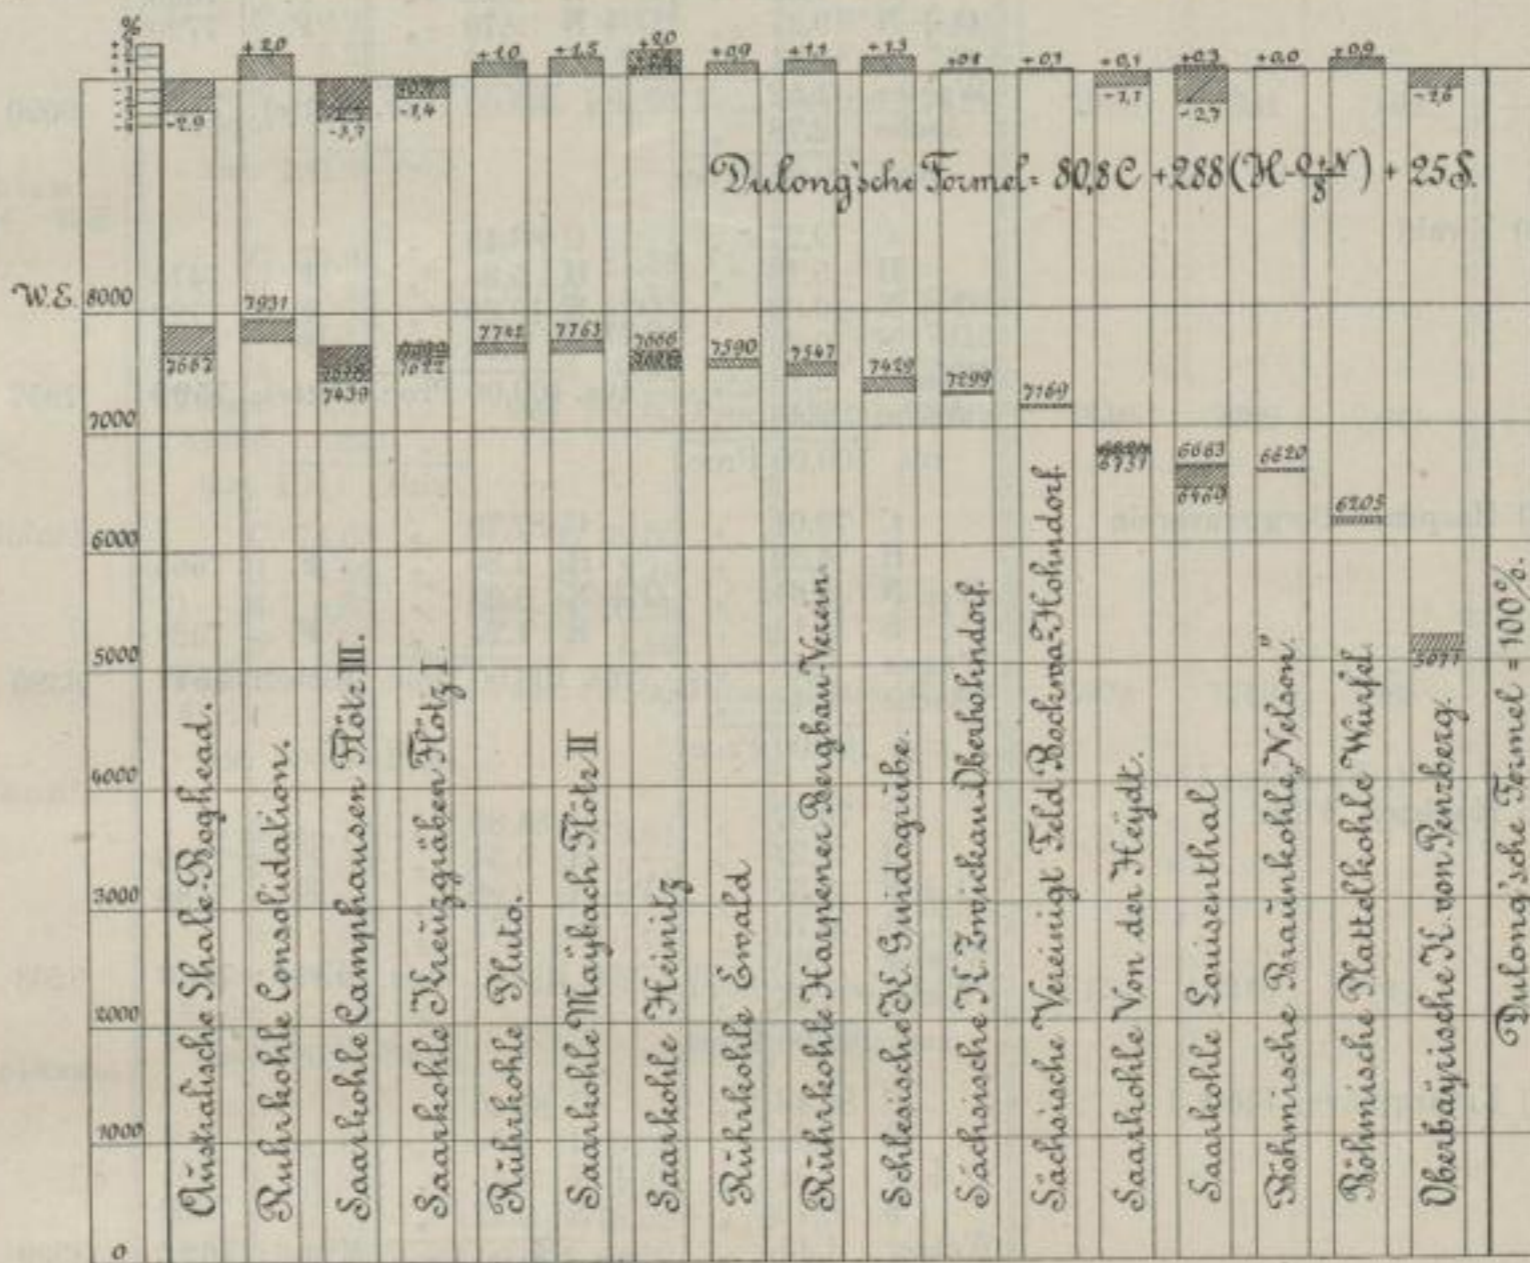 %
+2,0
+1,0
+1,5
+2,0
+0,9
+1,1
+1,3
+0,1
+0,1
+0,3
+0,0
+0,9
-2,9
-3,7
-1,4
-1,1
-2,7
-2,6
Dulong'sche Formel = 80,8 C + 288 (H - O+N/8) + 25 S.
W.E. 8000
7931
7667
7439
7622
7742
7763
7666
7590
7547
7429
7299
7169
6731
6663
6469
6620
6205
5071
7000
6000
5000
4000
3000
2000
1000
0
Australische Shale-Boghead.
Ruhrkohle Consolidation.
Saarkohle Camphausen Flötz III.
Saarkohle Kreuzgräben Flötz I
Rührkohle Pluto.
Saarkohle Maybach Flötz II
Saarkohle Heinitz
Rührkohle Ewald
Rührkohle Harpener Bergbau-Verein.
Schlesische K. Guidogrube.
Sächsische K. Zwickau Oberhohndorf.
Sächsische Vereinigt Feld Bockwa-Hohndorf.
Saarkohle Von der Heydt.
Saarkohle Louisenthal
Böhmische Braunkohle „Nelson"
Böhmische Plattelkohle Würfel
Oberbayrische K. von Penzberg.
Dulong'sche Formel = 100%.